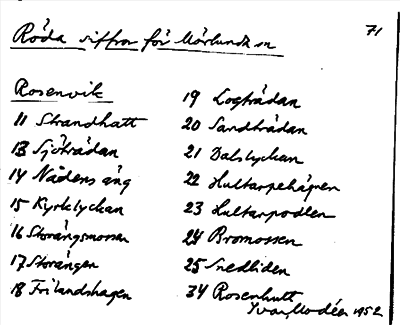 71
Röda siffror för Mörlunda sn
Rosenvik
11 Strandhatt
13 Sjöträdan
14 Nådens äng
15 Kyrklyckan
16 Storängsmossen
17 Storängen
18 Frilandshagen
19 Logträdan
20 Sandträdan
21 Dalslyckan
22 Hultarpehägnen
23 Hultarpodlen
24 Bromossen
25 Snedliden
34 Rosenhult
Yvar Modéer 1952